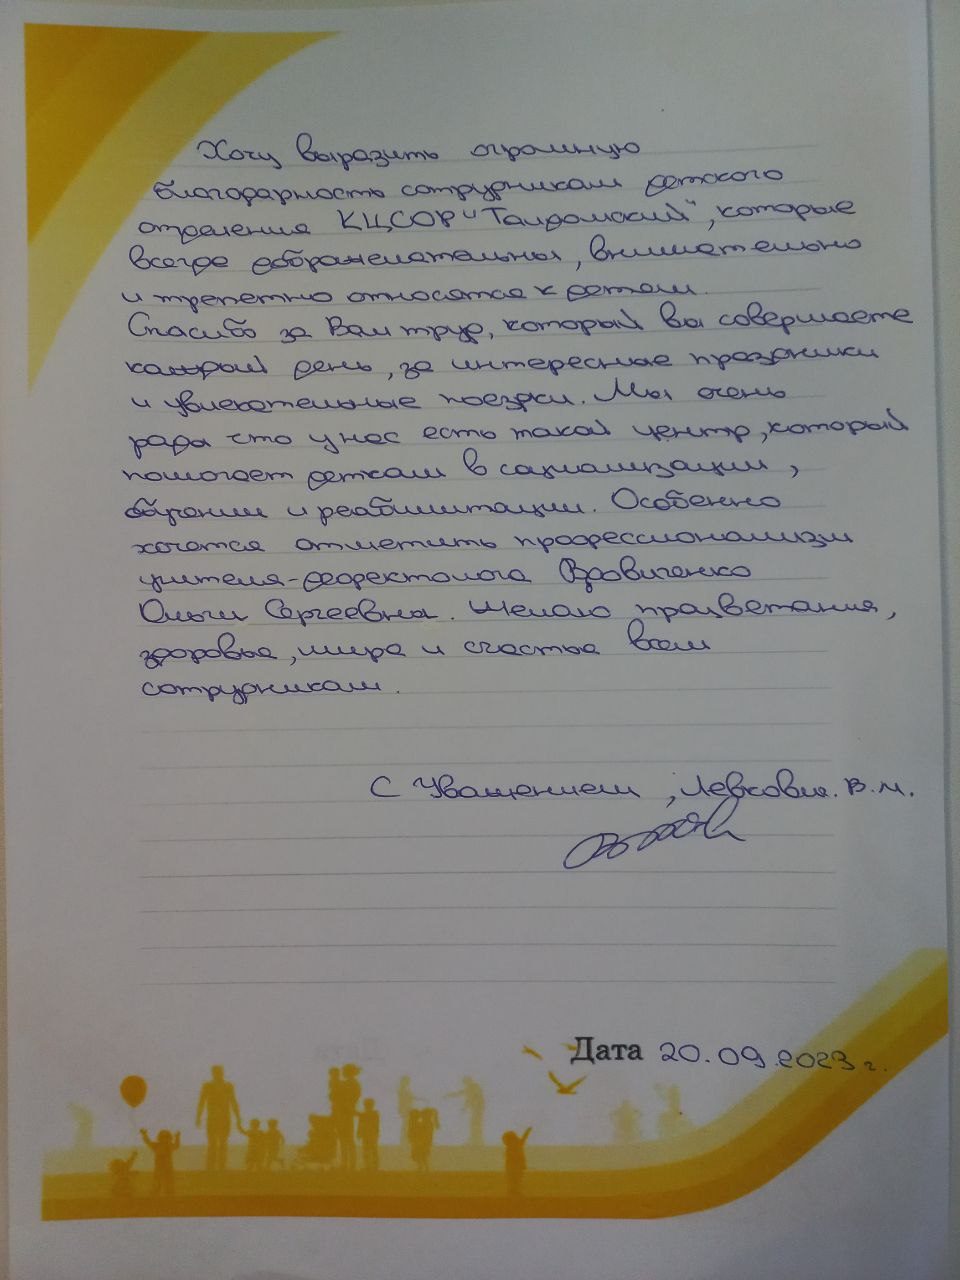 Хочу выразить огромную
благодарность сотрудникам детского
отделения КЦСОР "Талдомский", которые
всегда доброжелательны, внимательно
и трепетно относятся к детям.
Спасибо за Ваш труд, который вы совершаете
каждый день, за интересные праздники
и увлекательные поездки. Мы очень
рады что у нас есть такой центр, который
помогает деткам в социализации,
обучении и реабилитации. Особенно
хочется отметить профессионализм
учителя-дефектолога Вдовиченко
Ольги Сергеевны. Желаю процветания,
здоровья, мира и счастья всем
сотрудникам.
С Уважением, В.М.
Дата 20.09.2023 г.